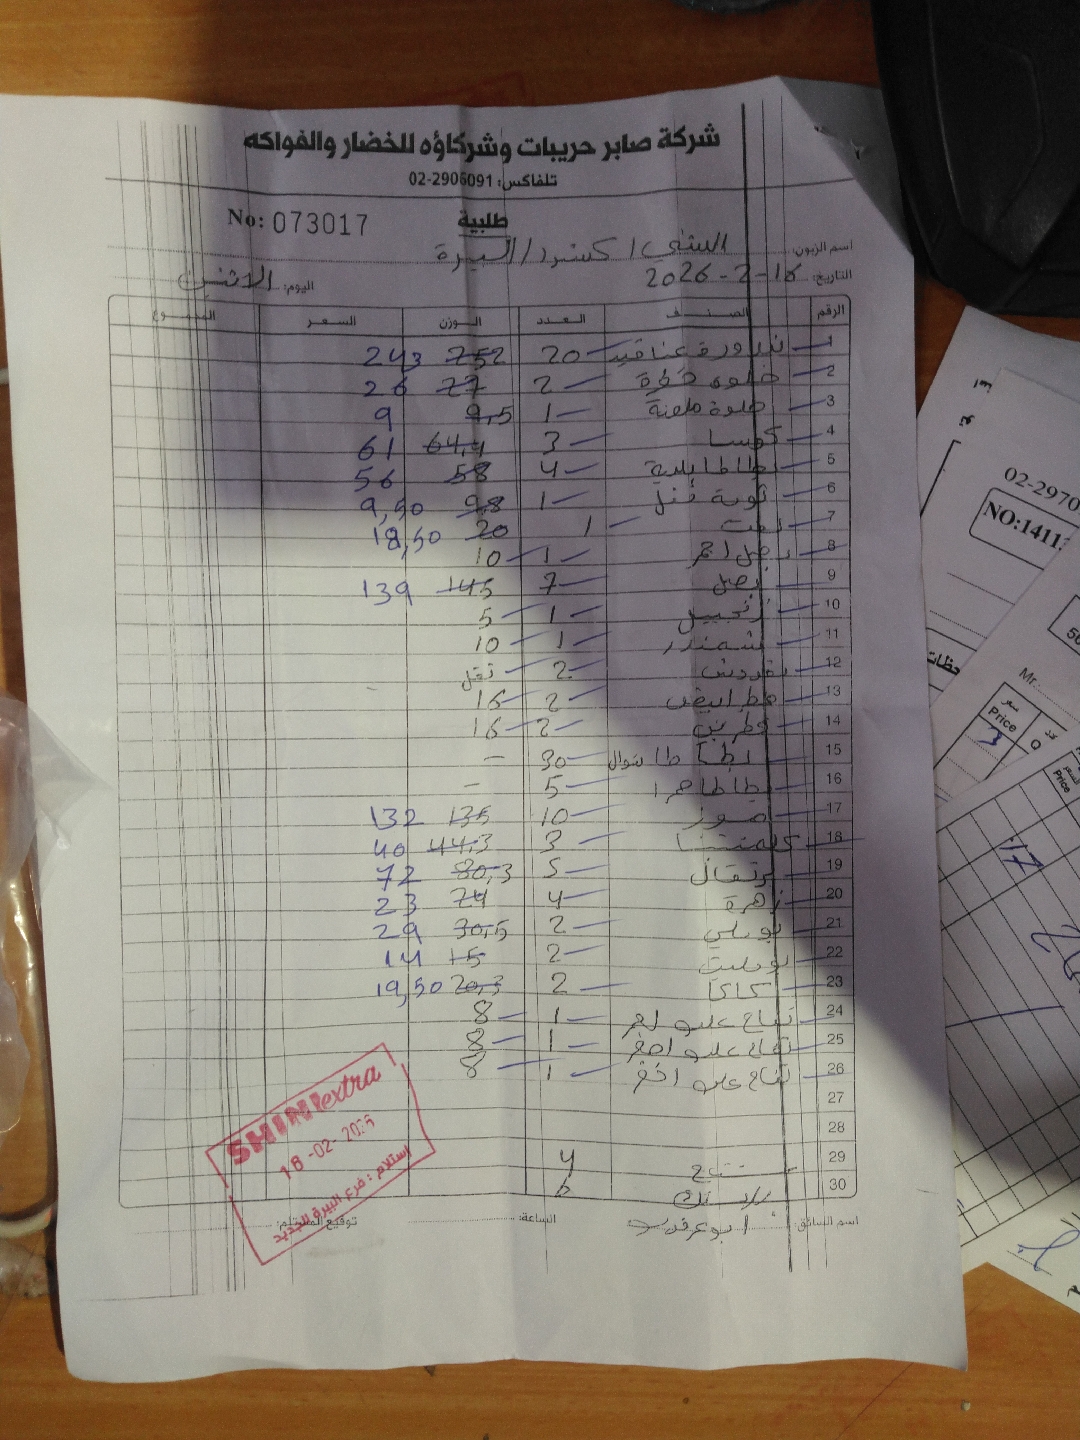 شركة صابر حريبات وشركاؤه للخضار والفواكه
تلفاكس: 02-2906091
طلبية
No: 073017
اسم الزبون: الشني اكسترا / البيرة
التاريخ: 16-2-2026 اليوم: الاثنين
الرقم الصنف العدد الوزن السعر المجموع
1 بندورة عناقيد 20 252 243
2 2 27 26
3 حلوة ملونة 1 9,5 9
4 كوسا 3 64,4 61
5 بطاطا بلدية 4 58 56
6 1 9,8 9,50
7 لفت 1 20 18,50
8 بصل احمر 1 10
9 بصل 7 145 139
10 زنجبيل 1 5
11 شمندر 1 10
12 بقدونس 2
13 2 16
14 2 16
15 بطاطا شوال 30 -
16 بطاطا حمرا 5 -
17 موز 10 135 132
18 كلمنتينا 3 44,3 40
19 برتقال 5 80,3 72
20 زهرة 4 24 23
21 بوملي 2 30,5 29
22 2 15 14
23 كاكا 2 20,3 19,50
24 تفاح علب احمر 1 8
25 تفاح علب اصفر 1 8
26 تفاح علب اخضر 1 8
27
28
29 4
30 6
اسم السائق: الساعة: توقيع المستلم:
SHINI extra
18-02-2026
إستلام: فرع البيرة الجديد
02-2970
NO:1411
Mr.
سعر
Price
3
Price
17